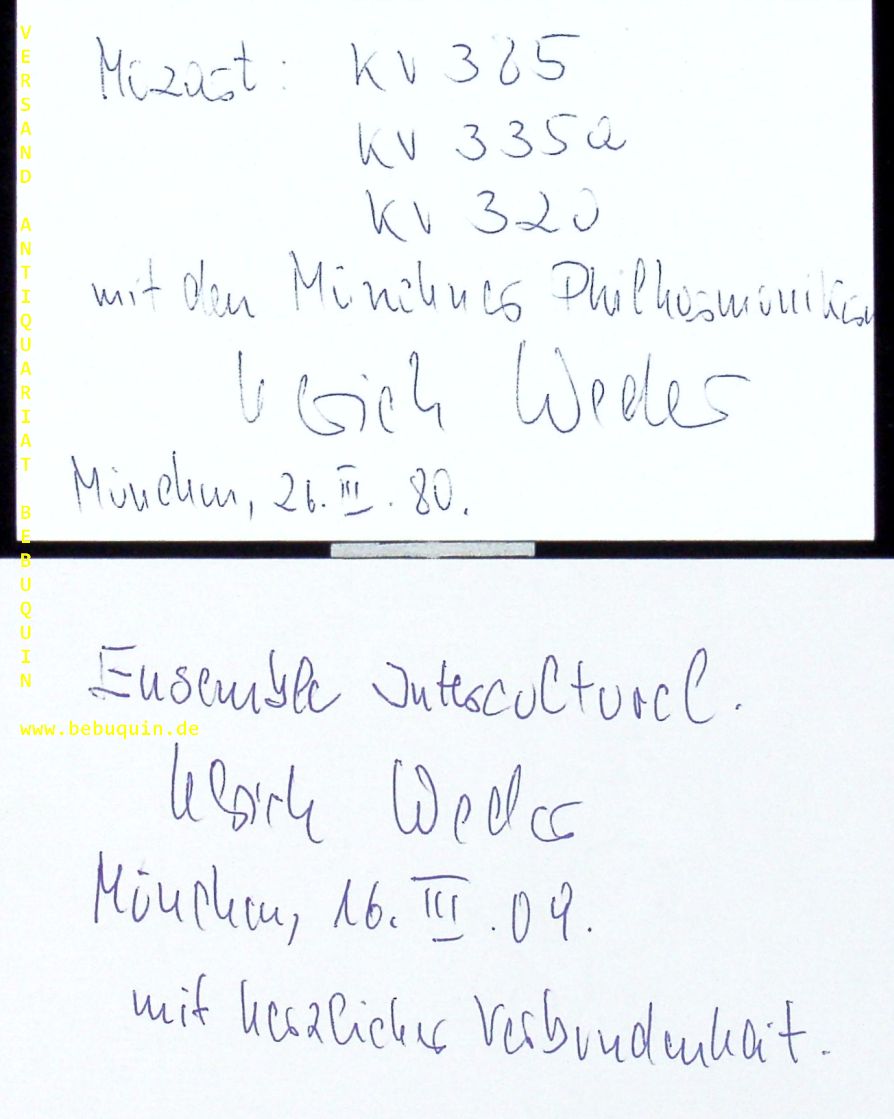 Mozart: KV 385
KV 335a
KV 320
mit den Münchner Philharmonikern
Ulrich Weder
München, 26. III. 80.
Ensemble interculturel.
Ulrich Weder
München, 16. III. 09.
mit herzlicher Verbundenheit.
VERSAND ANTIQUARIAT BEBUQUIN
www.bebuquin.de